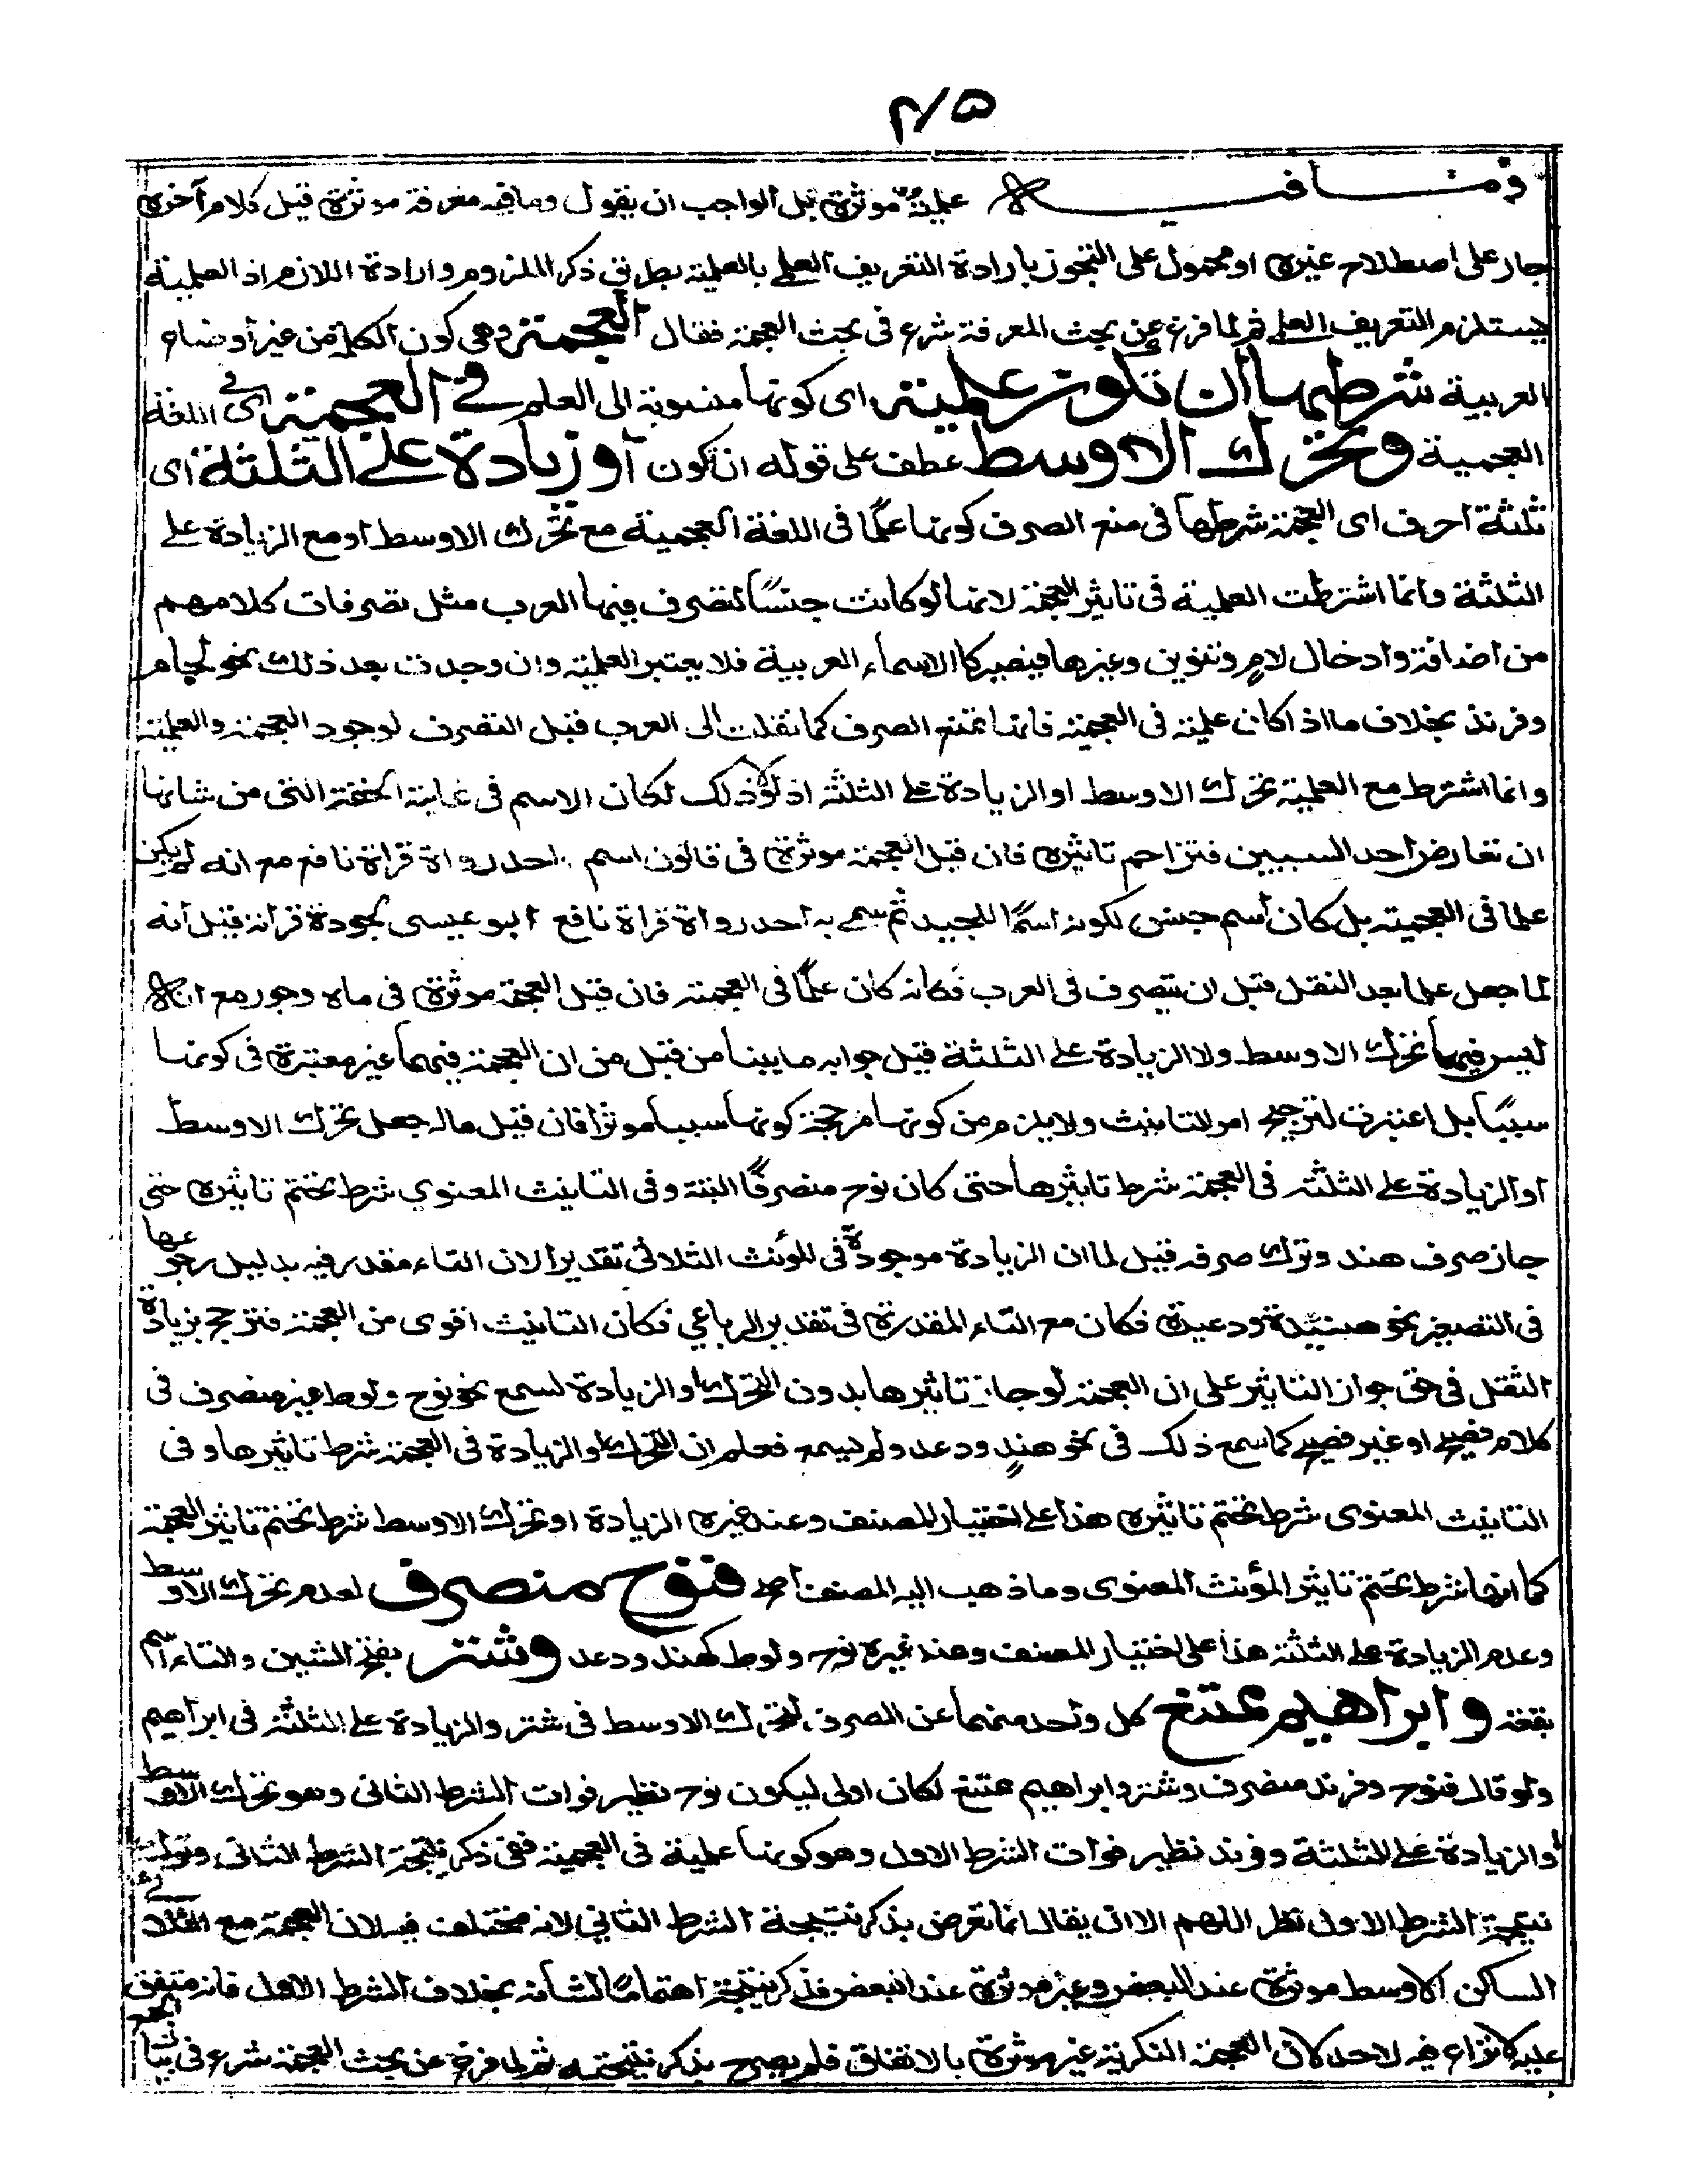 ٢٧٥
وما فيه علمية مؤثرة بل الواجب ان يقول وما فيه معرفة مؤثرة قيل كلام آخره
جار على اصطلاح غيره او محمول على التجوز بارادة التعريف العلمى بالعلمية بطريق ذكر الملزوم وارادة اللازم اذ العلمية
يستلزم التعريف العلمى ثم لما فرغ عن بحث المعرفة شرع فى بحث العجمة فقال العجمة وهى كون الكلمة من غير اوضاع
العربية شرطها ان تكون علمية اى كونها منسوبة الى العلم فى العجمة اى فى اللغة
العجمية وتحرك الاوسط عطف على قوله ان تكون او زيادة على الثلثة اى
ثلثة احرف اى العجمة شرطها فى منع الصرف كونها علمًا فى اللغة العجمية مع تحرك الاوسط او مع الزيادة على
الثلثة وانما اشترطت العلمية فى تاثير العجمة لانها لو كانت جنسًا لتصرف فيها العرب مثل تصرفات كلامهم
من اضافة وادخال لامٍ وتنوين وغيرها فيصير كالاسماء العربية فلا يعتبر العلمية وان وجدت بعد ذلك نحو لجام
وفرند بخلاف ما اذا كان علمية فى العجمية فانها تمنع الصرف كما نقلت الى العرب قبل التصرف لوجود العجمة والعلمية
وانما اشترط مع العلمية تحرك الاوسط او الزيادة على الثلثة اذ لولا ذلك لكان الاسم فى غاية الخفة التى من شانها
ان تعارض احد السببين فتزاحم تاثيره فان قيل العجمة موثرة فى قالون اسم احد رواة قراة نافع مع انه لم يكن
علما فى العجمية بل كان اسم جنس لكونه اسمًا للجيد ثم سمى به احد رواة قراة نافع ابو عيسى لجودة قراته قيل انه
لما جعل علما بعد النقل قبل ان يتصرف فى العرب فكانه كان علمًا فى العجمة فان قيل العجمة موثرة فى ماه وجور مع انه
ليس فيهما تحرك الاوسط ولا الزيادة على الثلثة قيل جوابه ما بينا من قبل من ان العجمة فيهما غير معتبرة فى كونها
سببًا بل اعتبرت لترجيح امر التانيث ولا يلزم من كونها مرجحة كونها سببا موثرا فان قيل ماله جعل تحرك الاوسط
او الزيادة على الثلثة فى العجمة شرط تاثيرها حتى كان نوح منصرفًا البتة وفى التانيث المعنوي شرط تحتم تاثيره حتى
جاز صرف هند وترك صرفه قيل لما ان الزيادة موجودة فى المؤنث الثلاثى تقديرا لان التاء مقدر فيه بدليل رجوعها
فى التصغير نحو هنيدة ودعيدة فكان مع التاء المقدرة فى تقدير الرباعي فكان التانيث اقوى من العجمة فترجح بزيادة
الثقل فى حق جواز التاثير على ان العجمة لو جاز تاثيرها بدون التحرك او الزيادة لسمع نحو نوح ولوط غير منصرف فى
كلام فصيح او غير فصيح كما سمع ذلك فى نحو هندٍ ودعد ولم يسمع فعلم ان التحرك او الزيادة فى العجمة شرط تاثيرها وفى
التانيث المعنوى شرط تحتم تاثيره هذا على اختيار المصنف وعند غيره الزيادة او تحرك الاوسط شرط تحتم تاثير العجمة
كما انها شرط تحتم تاثير المؤنث المعنوى وما ذهب اليه المصنف اصح فنوح منصرف لعدم تحرك الاوسط
وعدم الزيادة على الثلثة هذا على اختيار المصنف وعند غيره نوح ولوط كهند ودعد وشتر بفتح الشين والتاء اسم
بقعة وابراهيم ممتنع كل واحد منهما عن الصرف لتحرك الاوسط فى شتر والزيادة على الثلثة فى ابراهيم
ولو قال فنوح وفرند منصرف وشتر وابراهيم ممتنع لكان اولى ليكون نوح نظير فوات الشرط الثانى وهو تحرك الاوسط
او الزيادة على الثلثة وفرند نظير فوات الشرط الاول وهو كونها علمية فى العجمية ففى ذكر نتيجة الشرط الثانى وترك
نتيجة الشرط الاول نظر اللهم الا ان يقال انما تعرض بذكر نتيجة الشرط الثاني لانه مختلف فيه لان العجمة مع الثلاثى
الساكن الاوسط موثرة عند البعض وغير موثرة عند البعض فذكر نتيجته اهتمامًا لشانه بخلاف الشرط الاول فانه متفق
عليه لا نزاع فيه لاحد لان العجمة النكرية غير موثرة بالاتفاق فلم يصرح بذكر نتيجته ثم لما فرغ عن بحث العجمة شرع فى بيان
الجمع